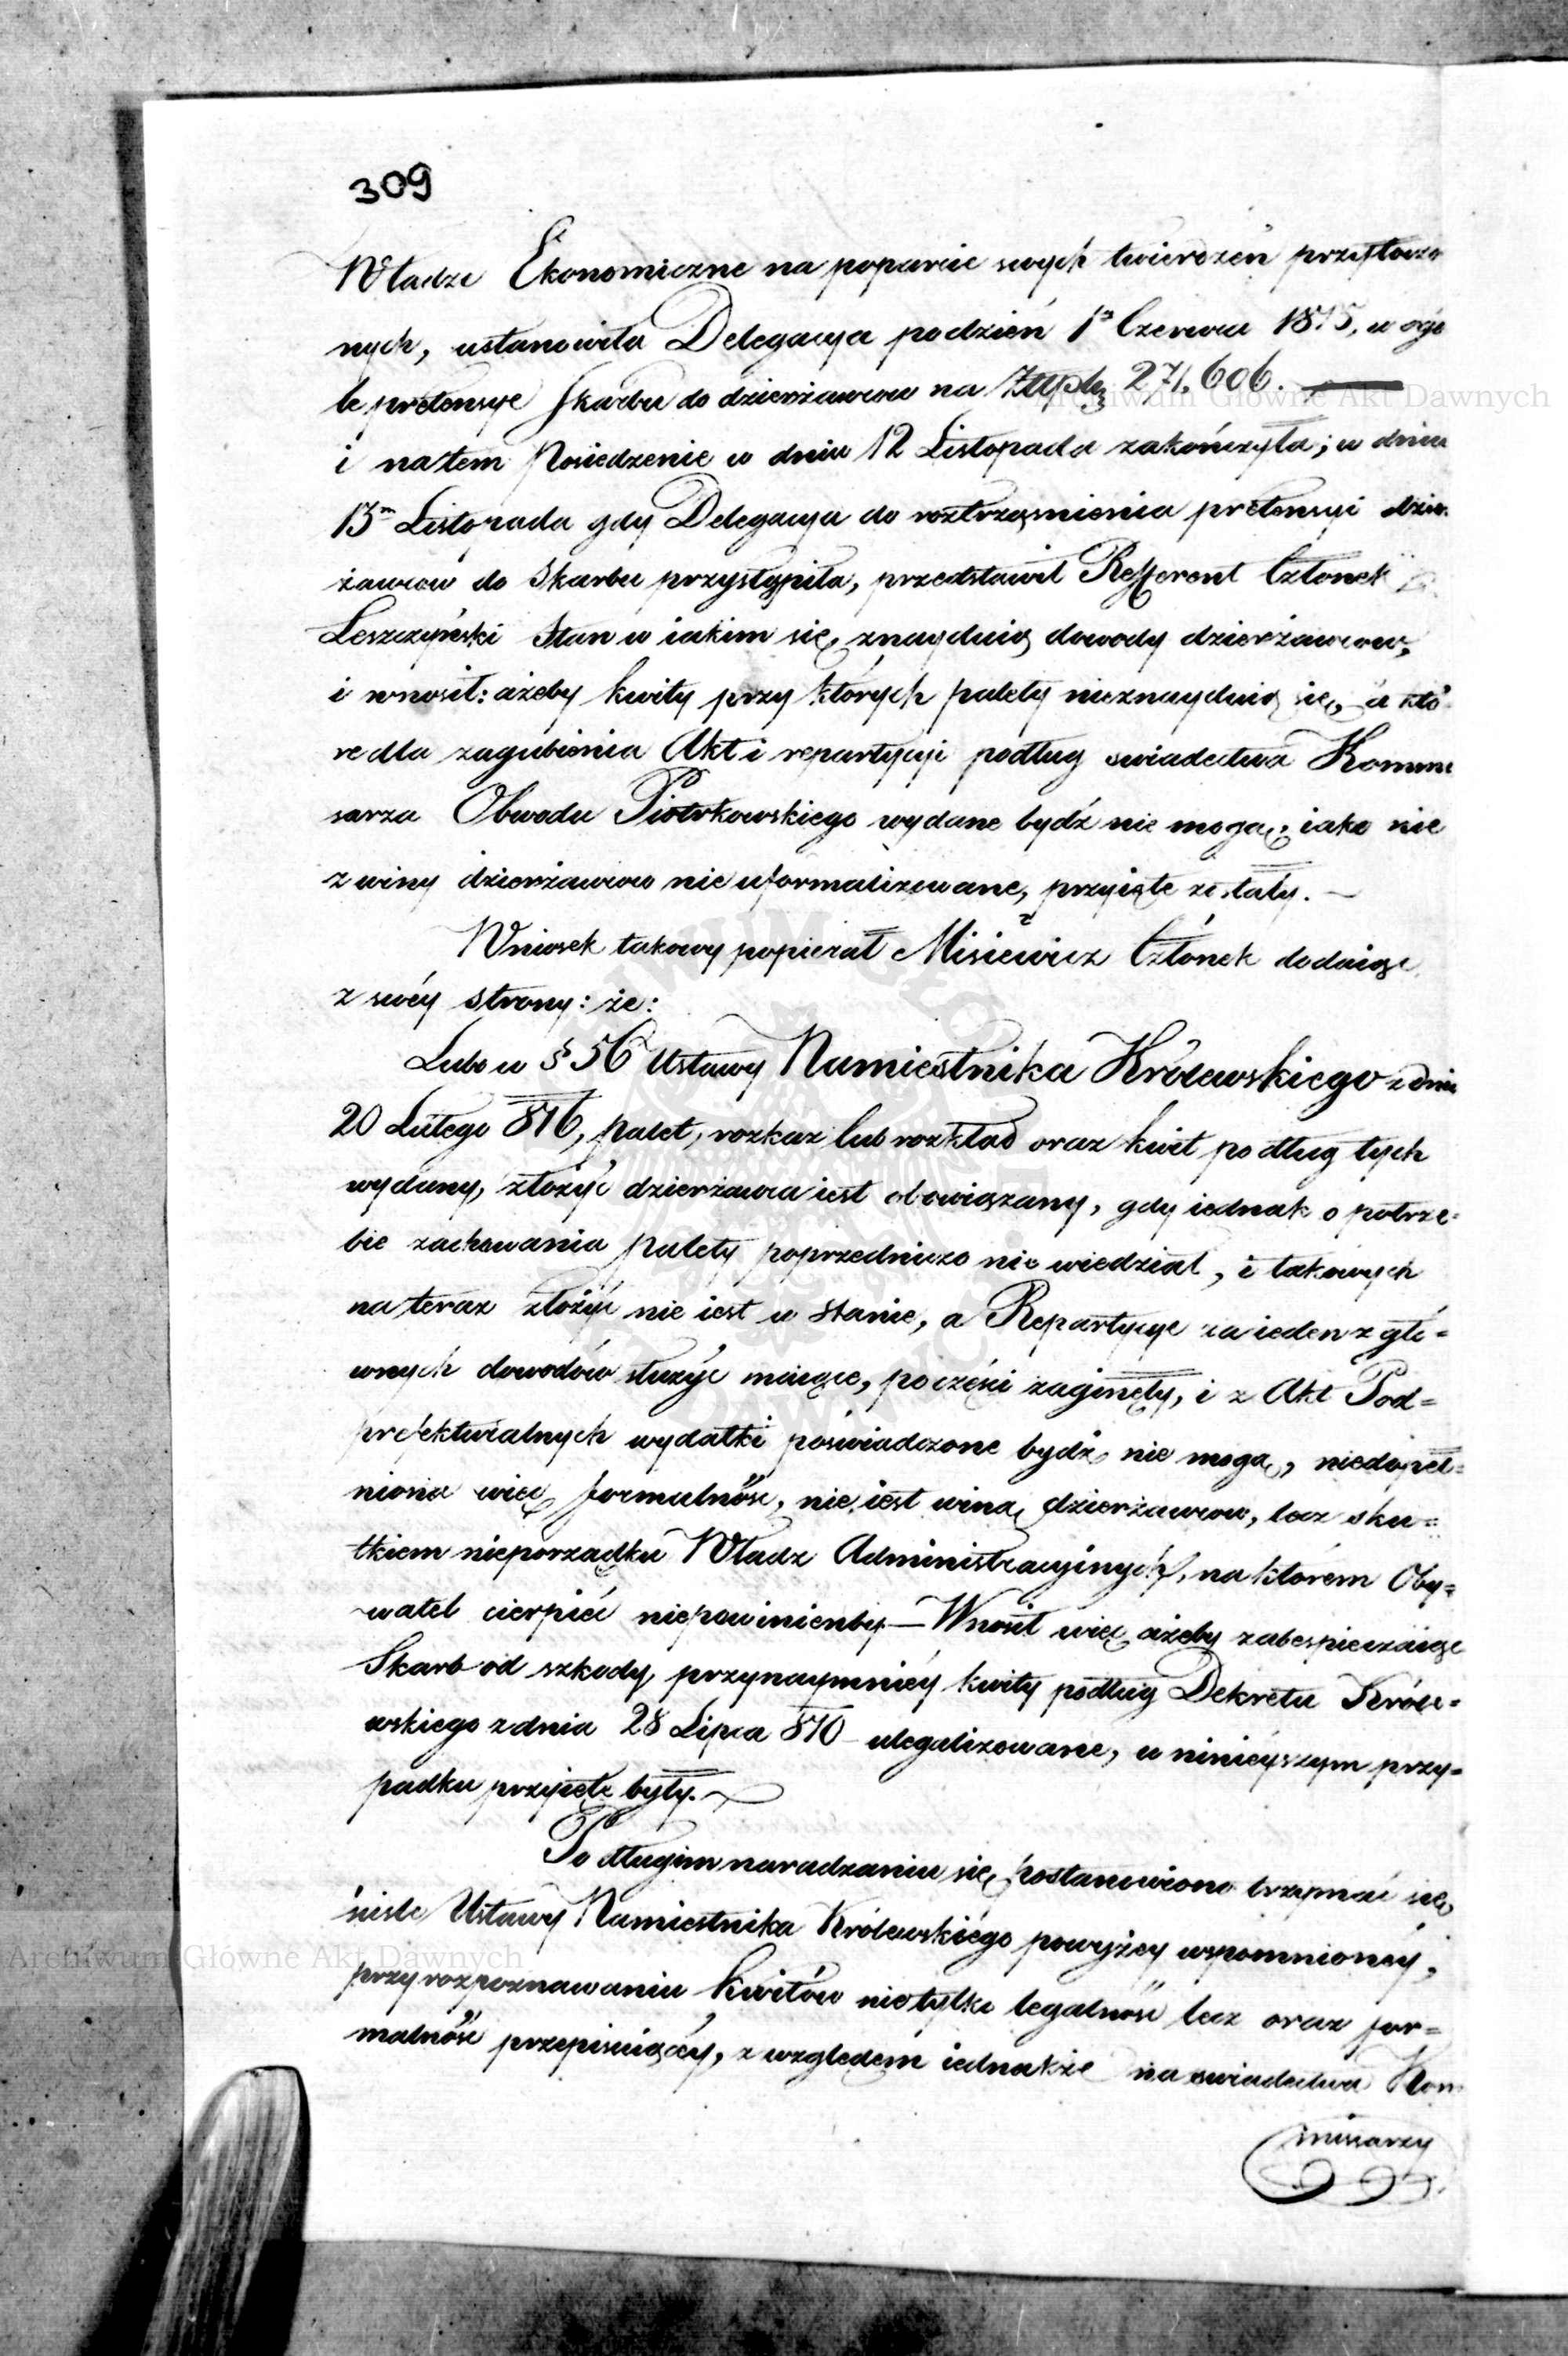 309
Władze Ekonomiczne na poparcie swych twierdzeń przytoczo
nych, ustanowiła Delegacya podzień 1º Czerwca 1815, w ogó
le pretensye Skarbu do dzierżawców na Złłpols 271.606.
i natem Posiedzenie w dniu 12 Listopada zakończyła; w dniu
13m Listopada gdy Delegacya do roztrząśnienia pretensyi dzier
żawców do Skarbu przystąpiła, przedstawił Refferent Członek
Leszczyński Stan w iakim się znayduią dowody dzierżawców,
i wnosił: ażeby kwity przy których palety nieznayduią się, a któ
re dla zagubienia Akt i repartycyi podług swiadectwa Kommi
sarza Obwodu Piotrkowskiego wydane bydź nie mogą, iako nie
z winy dzierżawców nie uformalizowane, przyięte zostały. —
Wniosek takowy popierał Misiewicz Członek dodaiąc
z swéy strony: że:
Lubo w § 56 Ustawy Namiestnika Królewskiego z dnia
20 Lutego 816, palet, rozkaz lub rozkład oraz kwit podług tych
wydany, złożyć dzierżawca iest obowiązany, gdy iednak o potrze=
bie zachowania palety poprzedniczo nie wiedział, i takowych
na teraz złożyć nie iest w stanie, a Repartycye za ieden z głó=
wnych dowodów służyć maiące, po części zaginęły, i z Akt Pod=
prefekturalnych wydatki poświadczone bydź nie mogą, niedopeł=
niona więc formalność, nie iest winą dzierżawców, lecz sku=
tkiem nieporządku Władz Administracyjnych, na którem Oby=
watel cierpieć niepowinienby — Wnosił więc ażeby zabespieczaiąc
Skarb od szkody, przynaymniéy kwity podług Dekretu Króle=
wskiego z dnia 28 Lipca 810 ulegalizowane, w ninieyszym przy=
padku przyięte były.
Po długim naradzaniu się postanowiono trzymać się
ściśle Ustawy Namiestnika Królewskiego powyżey wspomnioney,
przy rozpoznawaniu kwitów nietylko legalność lecz oraz for=
malność przepisuiącéy, z względem iednakże na swiadectwa Kom
missarzy
Archiwum Główne Akt Dawnych
Archiwum Główne Akt Dawnych